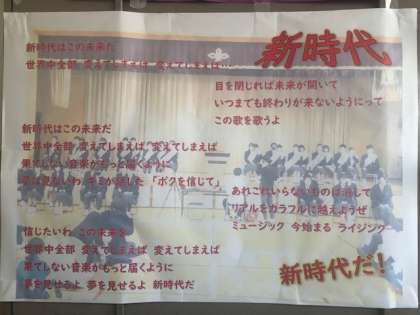 新時代
新時代はこの未来だ
世界中全部 変えてしまえば 変えてしまえば…
目を閉じれば未来が開いて
いつまでも終わりが来ないようにって
この歌を歌うよ
新時代はこの未来だ
世界中全部 変えてしまえば 変えてしまえば
果てしない音楽がもっと届くように
夢は見ないわ キミが話した 「ボクを信じて」
あれこれいらないものは消して
リアルをカラフルに越えようぜ
ミュージック 今始まる ライジング
信じたいわ この未来を
世界中全部 変えてしまえば 変えてしまえば
果てしない音楽がもっと届くように
夢を見せるよ 夢を見せるよ 新時代だ
新時代だ！